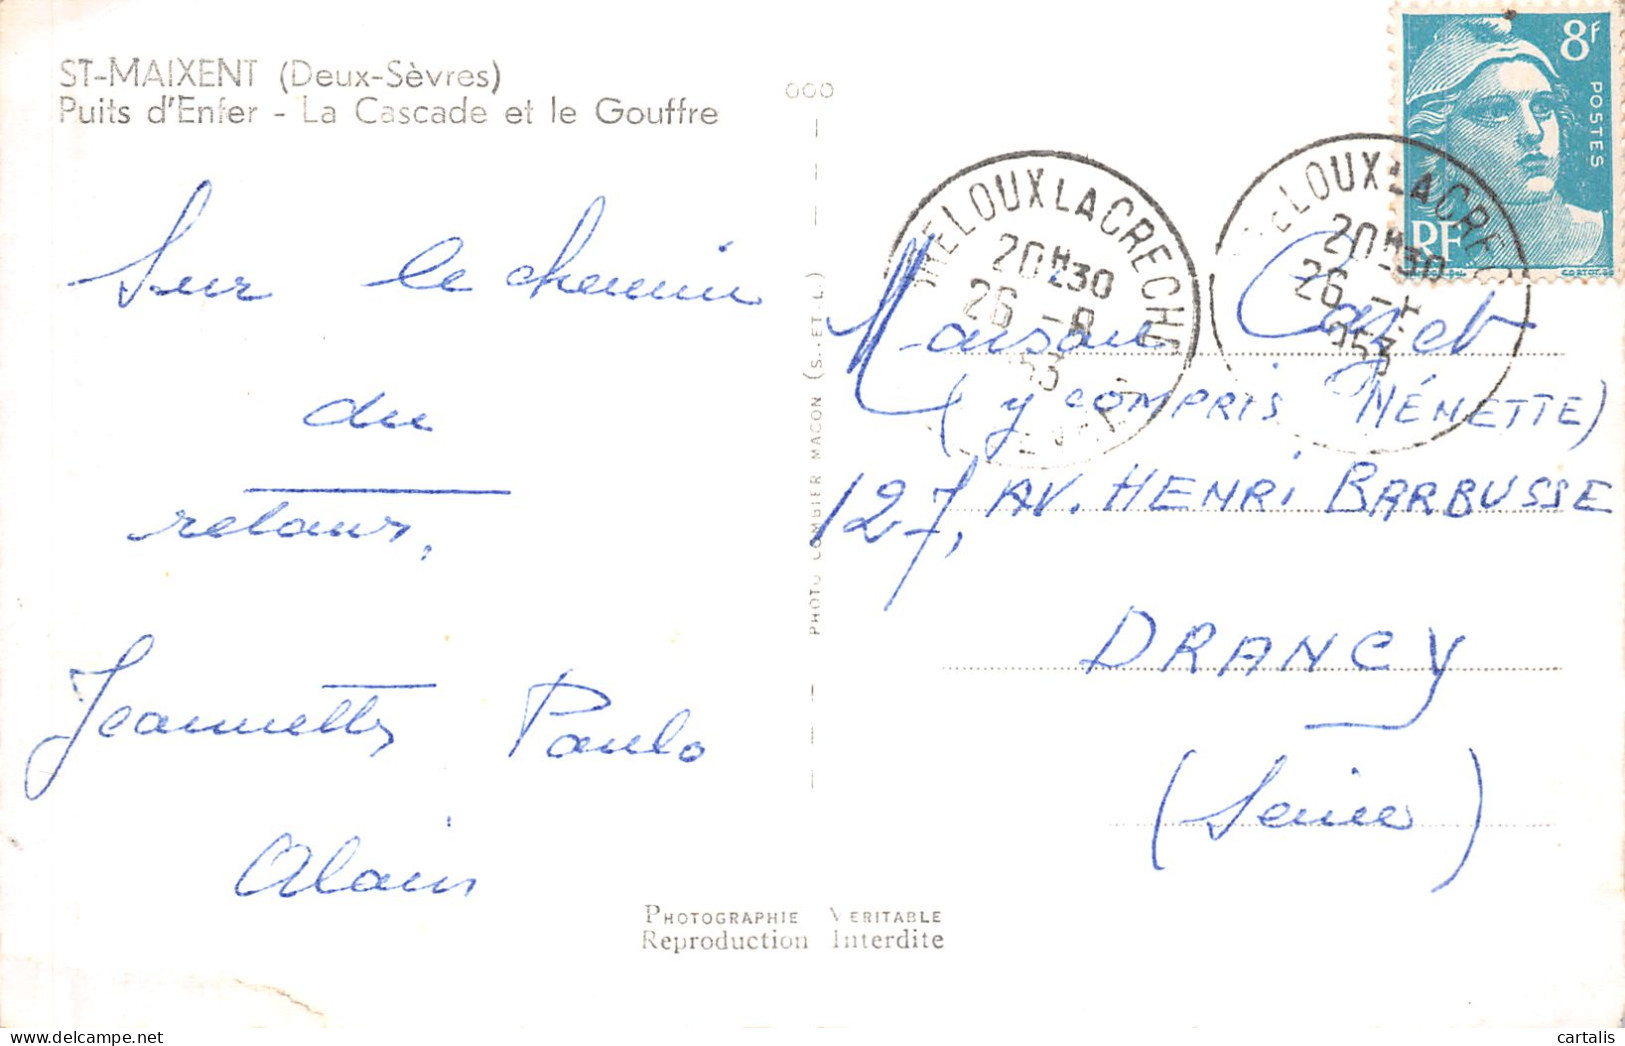 ST-MAIXENT (Deux-Sèvres)
Puits d'Enfer - La Cascade et le Gouffre
Sur le chemin
du
retour.
Jeannette Paulo
Alain
PHOTO COMBIER MACON (S.-ET-L.)
8F
POSTES
RF
LOUX LA CRECHE
20H30
26 -8
53
LOUX LA CRE
20H30
26 -
953
Maison Cazet
(y COMPRIS NÉNETTE)
127, AV. HENRI BARBUSSE
DRANCY
(Seine)
PHOTOGRAPHIE VERITABLE
Reproduction Interdite
cartalis